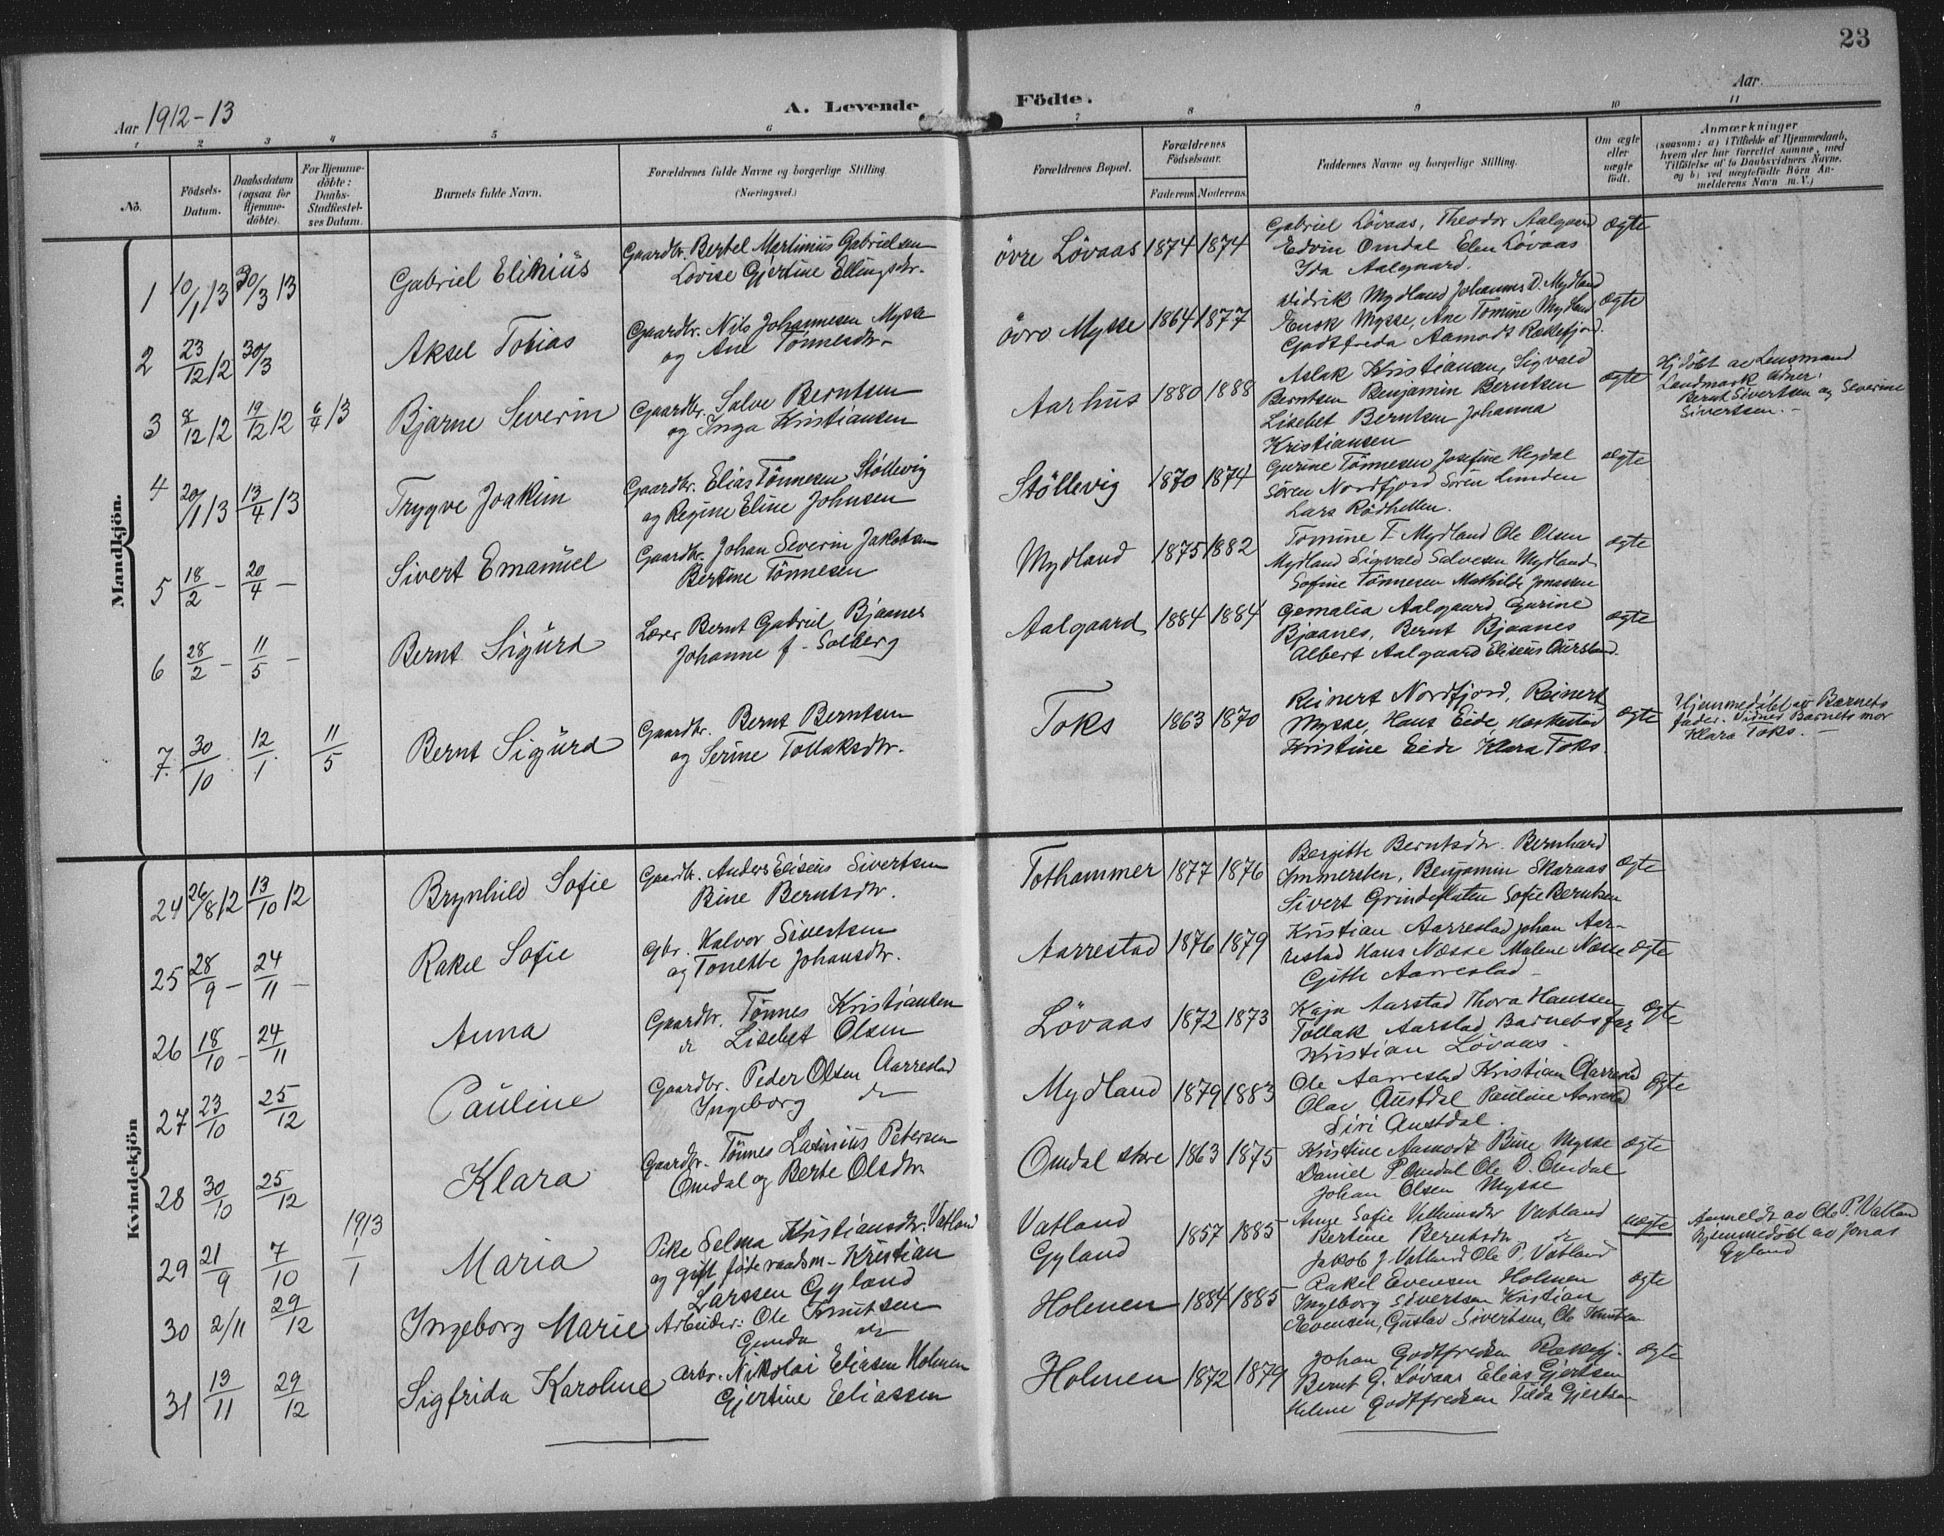 23
Aar 1912-13
A. Levende Födte.
Aar
1 2 3 4 5 6 7 8 9 10 11
No.
Födsels-Datum.
Daabsdatum (ogsaa for Hjemmedöbte).
For Hjemmedöbte: Daabs-Stadfæstelses Datum.
Barnets fulde Navn.
Forældrenes fulde Navne og borgerlige Stilling (Næringsvei.)
Forældrenes Bopæl.
Forældrenes Födselsaar.
Faderens Moderens
Faddernes Navne og borgerlige Stilling.
Om ægte eller uægte födt.
Anmærkninger
(saasom: a) i Tilfælde af Hjemmedaab, hvem der har forrettet samme, med Tilföielse af to Daabsvidners Navne, og b) ved uægtefödte Börn Anmelderens Navn m. V.)
Mandkjön.
1 10/1 13 30/3 13 Gabriel Elinius
Gaardbr. Bertel Martinius Gabrielsen
Lovise Gjertine Ellingsdtr.
övre Lövaas 1874 1874
Gabriel Lövaas, Theodor Aalgaard
Edvin Omdal Elen Lövaas
Ida Aalgaard.
ægte
2 23/12 12 30/3 Aksel Tobias
Gaardbr. Nils Johannesen Mysse
og Ane Tönnesdtr.
övre Mysse 1864 1877
Didrik Mydland Johannes D. Mydland
Enok Mysse, Ane Tomine Mydland
Godtfreda Aamodt Rækefjord.
ægte
3 8/12 12 19/12 12 6/4 13 Bjarne Severin
Gaardbr. Salve Berntsen
og Inga Kristiansen
Aarhus 1880 1888
Aslak Kristiansen, Sigvald
Berntsen Benjamin Berntsen
Lisebet Berntsen Johanna
Kristiansen
ægte
Hjdöbt av Lensmand
Landmark
Bernt Sivertsen og Severine
Sivertsen. -
4 20/1 13 13/4 13 Trygve Joakim
Gaardbr. Elias Tönnesen Stöllevig
og Regine Eline Johnsen
Stöllevig 1870 1874
Gurine Tönnesen Josefine Hegdal
Sören Nordfjord Sören Lunden
Lars Rödhellen.
ægte
5 18/2 - 20/4 - Sivert Emanuel
Gaardbr. Johan Severin Jakobsen
Bertine Tönnesen
Mydland 1875 1882
Tomine T Mydland Ole Olsen
Mydland Sigvald Salvesen Mydland
Sofine Tönnesen Mathilde Jonassen
ægte
6 28/2 - 11/5 - Bernt Sigurd
Lærer Bernt Gabriel Bjaanes
Johanne f - Solberg
Aalgaard 1884 1884
Gemalia Aalgaard Gurine
Bjaanes, Bernt Bjaanes
Albert Aalgaard Eliseus Aursland
ægte
7. 30/10 12/1 11/5 Bernt Sigurd
Gaardbr. Bernt Berntsen
og Serine Tollaksdtr.
Toks 1863 1870
Reinert Nordfjord, Reinert
Mysse, Hans Eide,
Kristine Eide Klara Toks
ægte
Hjemmedöbt av Barnets
fader. Vidner Barnets mor
Klara Toks. -
Kvindekjön
24 26/8 12 13/10 12 Brynhild Sofie
Gaardbr. Anders Eliseus Sivertsen
Bine Berntsdtr.
Tothammer 1877 1876
Bergitte Berntsdtr. Bernhard
Immersten, Benjamin Skaraas
Sivert Grindeflaten Sofie Berntsen
ægte
25 28/9 - 24/11 - Rakel Sofie
Gbr. Halvor Sivertsen
og Tonette Johansdtr.
Aarrestad 1876 1879
Kristian Aarrestad Johan Aar-
restad Hans Næsse Malene Næsse
Gitte Aarrestad -
ægte
26 18/10 - 24/11 Anna
Gaardbr. Tönnes Kristiansen
Lisebet Olsen
Lövaas 1872 1873
Kaja Aarstad Thora Hanssen
Tollak Aarstad Barnets far
Kristian Lövaas.
ægte
27 23/10 25/12 Pauline
Gaardbr. Peder Olsen Aarrestad
Ingeborg do
Mydland 1879 1883
Ole Aarrestad Kristian Aarrestad
Olav Austdal Pauline Aarrestad
Siri Austdal.
ægte
28 30/10 25/12 Klara
Gaardbr. Tönnes Lasinius Petersen
Omdal og Berte Olsdtr.
Omdal store 1863 1875
Kristine Aamodt Bine Mysse
Daniel P. Omdal Ole O. Omdal
Johan Olsen Mysse
ægte
29 21/9 7/10 1913 1/1 Maria
Pike Selma Kristiansdtr. Vatland
og gift föderaadsm - Kristian
Larssen Gyland
Vatland
Gyland
1857 1885
Ane Sofie Villumsdtr Vatland
Bertine Berntsdtr do
Jakob J. Vatland Ole P. Vatland
uægte
Anmeldt av Ole P. Vatland
hjemmedöbt av Jonas
Gyland
30 2/11 29/12 Ingeborg Marie
Arbeider: Ole Knutsen
Gunda do
Holmen 1884 1885
Rakel Evensen Holmen
Ingeborg Sivertsen Kristian
Evensen, Gustav Sivertsen, Ole Knutsen
ægte
31 13/11 29/12 Sigfrida Karoline
Arbr. Nikolai Eliasen Holmen
Gjertine Eliassen
Holmen 1872 1879
Johan Godtfredsen Rækefj.
Bernt G. Lövaas Elias Gjertsen
Helene Godtfredsen Tilda Gjertsen
ægte